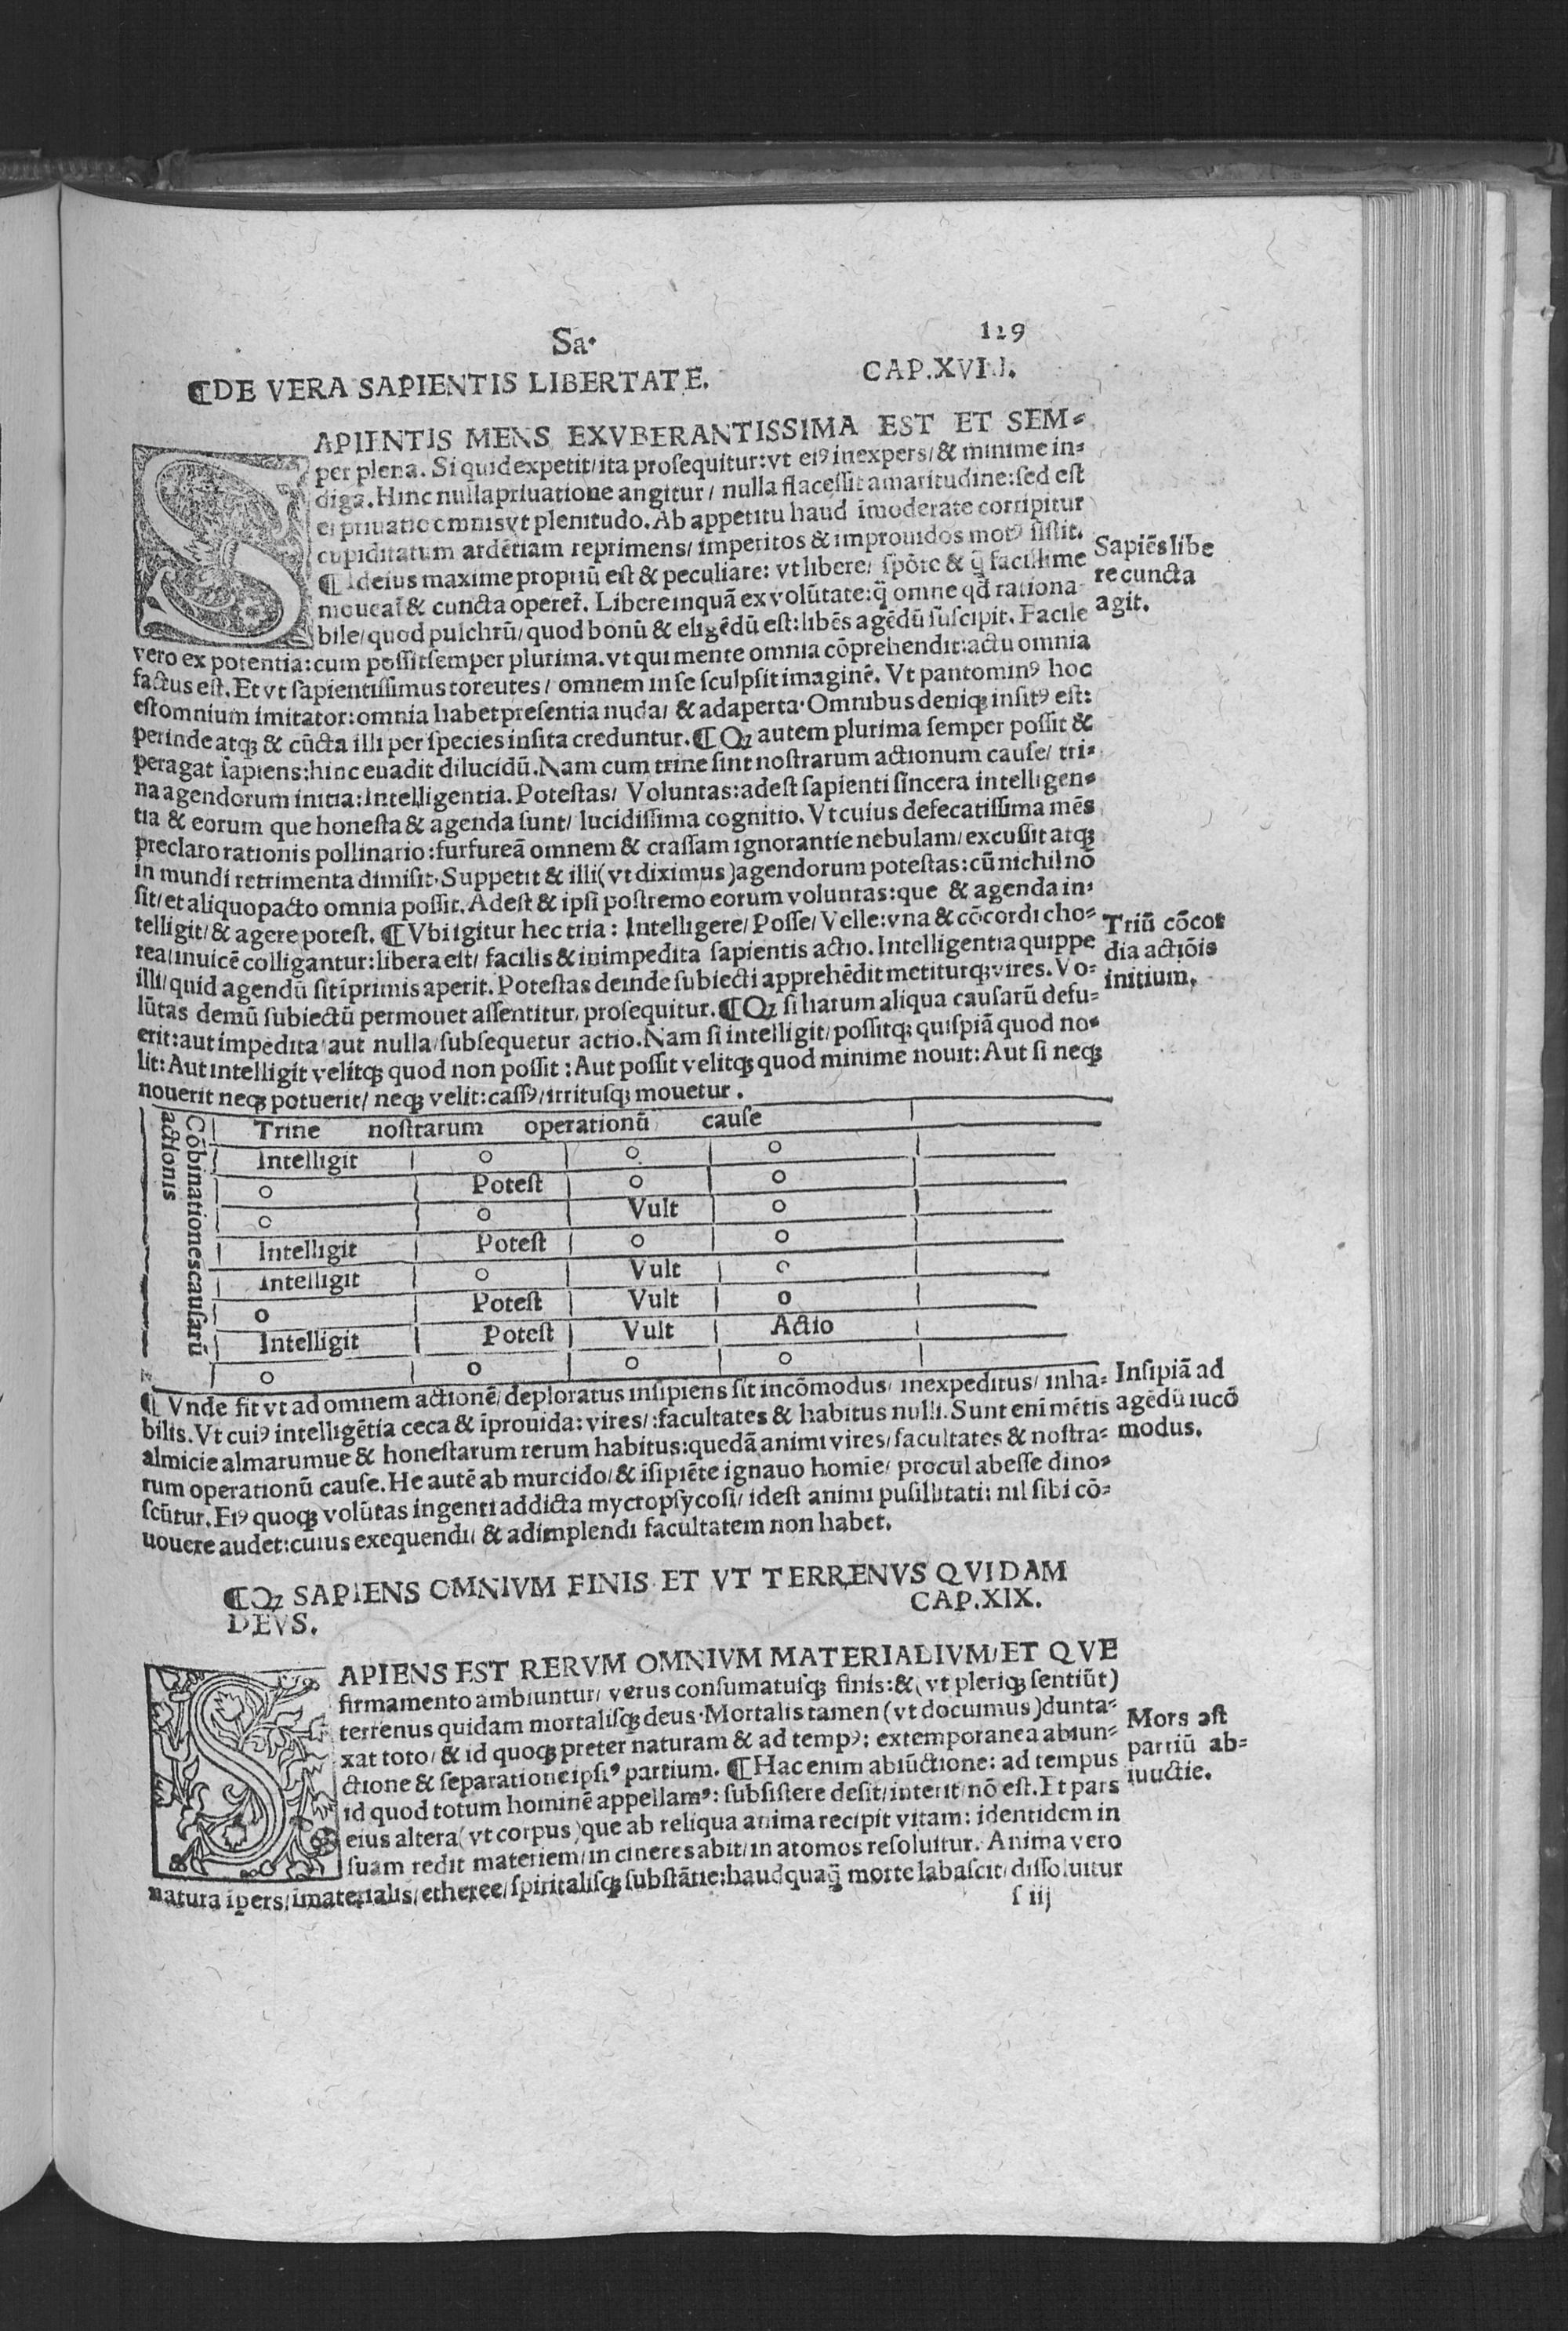 Sa.
129
¶DE VERA SAPIENTIS LIBERTATE. CAP.XVIII.
SAPIENTIS MENS EXVBERANTISSIMA EST ET SEM⸗
per plena. Si quid expetit/ita prosequitur:vt eiꝰ inexpers/& minime in⸗
diga.Hinc nulla priuatione angitur/ nulla flacessit amaritudine:sed est
ei priuatio omnis vt plenitudo.Ab appetitu haud imoderate corripitur
cupiditatum ardētiam reprimens/ imperitos & improuidos motꝰ sistit.
¶Id eius maxime propriū est & peculiare: vt libere/ spōte & q̄ facillime
moueat̄ & cuncta operet̄. Libere inquā ex volūtate:q̄ omne qd̄ rationa
bile/quod pulchrū/quod bonū & eligēdū est:libēs agēdū suscipit. Facile
vero ex potentia:cum possit semper plurima.vt qui mente omnia cōprehendit:actu omnia
factus est.Et vt sapientissimus toreutes/ omnem in se sculpsit imaginē. Vt pantominꝰ hoc
est omnium imitator:omnia habet presentia nuda/ & adaperta.Omnibus deniqꝫ insitꝰ est:
perinde atqꝫ & cūcta illi per species insita creduntur.¶Qꝫ autem plurima semper possit &
peragat sapiens:hinc euadit dilucidū.Nam cum trine sint nostrarum actionum cause/ tri⸗
na agendorum initia:Intelligentia.Potestas/ Voluntas:adest sapienti sincera intelligen⸗
tia & eorum que honesta & agenda sunt/ lucidissima cognitio. Vt cuius defecatissima mēs
preclaro rationis pollinario:furfureā omnem & crassam ignorantie nebulam/excussit atqꝫ
in mundi retrimenta dimisit.Suppetit & illi(vt diximus)agendorum potestas:cū nichil nō
sit/et aliquo pacto omnia possit.Adest & ipsi postremo eorum voluntas:que & agenda in⸗
telligit/& agere potest.¶Vbi igitur hec tria: Intelligere/Posse/Velle:vna & cōcordi cho⸗
rea/inuicē colligantur:libera est/ facilis & inimpedita sapientis actio.Intelligentia quippe
illi/quid agendū sit īprimis aperit.Potestas deinde subiecti apprehēdit metiturqꝫ vires.Vo⸗
lūtas demū subiectū permouet assentitur, prosequitur.¶Qꝫ si harum aliqua causarū defu⸗
erit:aut impedita aut nulla/subsequetur actio.Nam si intelligit/possitqꝫ quispiā quod no⸗
lit:Aut intelligit velitqꝫ quod non possit:Aut possit velitqꝫ quod minime nouit:Aut si neqꝫ
nouerit neqꝫ potuerit/ neqꝫ velit:cassꝰ/irritusqꝫ mouetur.
Sapiēs libe
re cuncta
agit.
Triū cōcor
dia actiōis
initium.
Cōbinationes causarū
actionis
Trine nostrarum operationū cause
Intelligit o o o
o Potest o o
o o Vult o
Intelligit Potest o o
Intelligit o Vult o
o Potest Vult o
Intelligit Potest Vult Actio
o o o o
¶Vnde fit vt ad omnem actionē/deploratus insipiens sit incōmodus/ inexpeditus/ inha⸗
bilis.Vt cuiꝰ intelligētia ceca & īprouida:vires/:facultates & habitus nulli.Sunt eni mētis
almicie almarumue & honestarum rerum habitus:quedā animi vires/facultates & nostra⸗
rum operationū cause.He autē ab murcido/& īsipiēte ignauo homie/ procul abesse dino⸗
scūtur.Eiꝰ quoqꝫ volūtas ingenti addicta mycropsycosi/ idest animi pusillitati: nil sibi cō⸗
uouere audet:cuius exequendi/ & adimplendi facultatem non habet.
Insipiā ad
agēdū īucō
modus.
¶Qꝫ SAPIENS OMNIVM FINIS ET VT TERRENVS QVIDAM
DEVS. CAP.XIX.
SAPIENS EST RERVM OMNIVM MATERIALIVM/ET QVE
firmamento ambiuntur/ verus consumatusqꝫ finis:&(vt pleriqꝫ sentiūt)
terrenus quidam mortalisqꝫ deus.Mortalis tamen(vt docuimus)dunta⸗
xat toto/& id quoqꝫ preter naturam & ad tempꝰ: extemporanea abiun⸗
ctione & separatione ipsiꝰ partium. ¶Hac enim abiūctione: ad tempus
id quod totum hominē appellamꝰ: subsistere desit/interit/nō est.Et pars
eius altera(vt corpus)que ab reliqua anima recipit vitam: identidem in
suam redit materiem/in cineres abit/in atomos resoluitur. Anima vero
natura īpers/imaterialis/etheree/spiritalisqꝫ substātie:haudquaq̄ morte labascit/dissoluitur
Mors ɔst
partiū ab⸗
iuuctie.
s iij